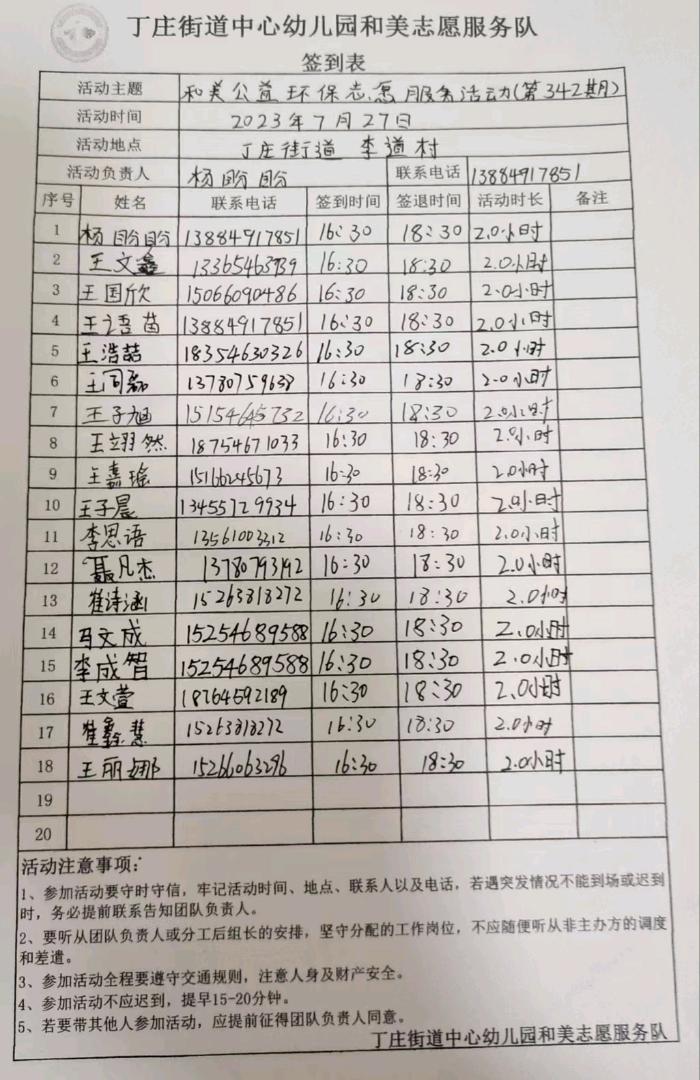 丁庄街道中心幼儿园和美志愿服务队
签到表
活动主题 和美公益环保志愿服务活动(第342期)
活动时间 2023年7月27日
活动地点 丁庄街道 李道村
活动负责人 杨盼盼 联系电话 13884917851
序号 姓名 联系电话 签到时间 签退时间 活动时长 备注
1 杨盼盼 13884917851 16:30 18:30 2.0小时
2 王文鑫 13365463939 16:30 18:30 2.0小时
3 王国欣 15066090486 16:30 18:30 2.0小时
4 王语苗 13884917851 16:30 18:30 2.0小时
5 王浩喆 18354630326 16:30 18:30 2.0小时
6 王同磊 13780759638 16:30 18:30 2.0小时
7 王子旭 15154645732 16:30 18:30 2.0小时
8 王翊然 18754671033 16:30 18:30 2.0小时
9 王嘉瑶 15166245673 16:30 18:30 2.0小时
10 王子晨 13455729934 16:30 18:30 2.0小时
11 李思语 13561003312 16:30 18:30 2.0小时
12 聂凡杰 13780793192 16:30 18:30 2.0小时
13 崔诗涵 15263818272 16:30 18:30 2.0小时
14 马文成 15254689588 16:30 18:30 2.0小时
15 李成智 15254689588 16:30 18:30 2.0小时
16 王文萱 18764592189 16:30 18:30 2.0小时
17 崔鑫慧 15263818272 16:30 18:30 2.0小时
18 王丽娜 15266063296 16:30 18:30 2.0小时
19
20
活动注意事项：
1、参加活动要守时守信，牢记活动时间、地点、联系人以及电话，若遇突发情况不能到场或迟到
时，务必提前联系告知团队负责人。
2、要听从团队负责人或分工后组长的安排，坚守分配的工作岗位，不应随便听从非主办方的调度
和差遣。
3、参加活动全程要遵守交通规则，注意人身及财产安全。
4、参加活动不应迟到，提早15-20分钟。
5、若要带其他人参加活动，应提前征得团队负责人同意。
丁庄街道中心幼儿园和美志愿服务队